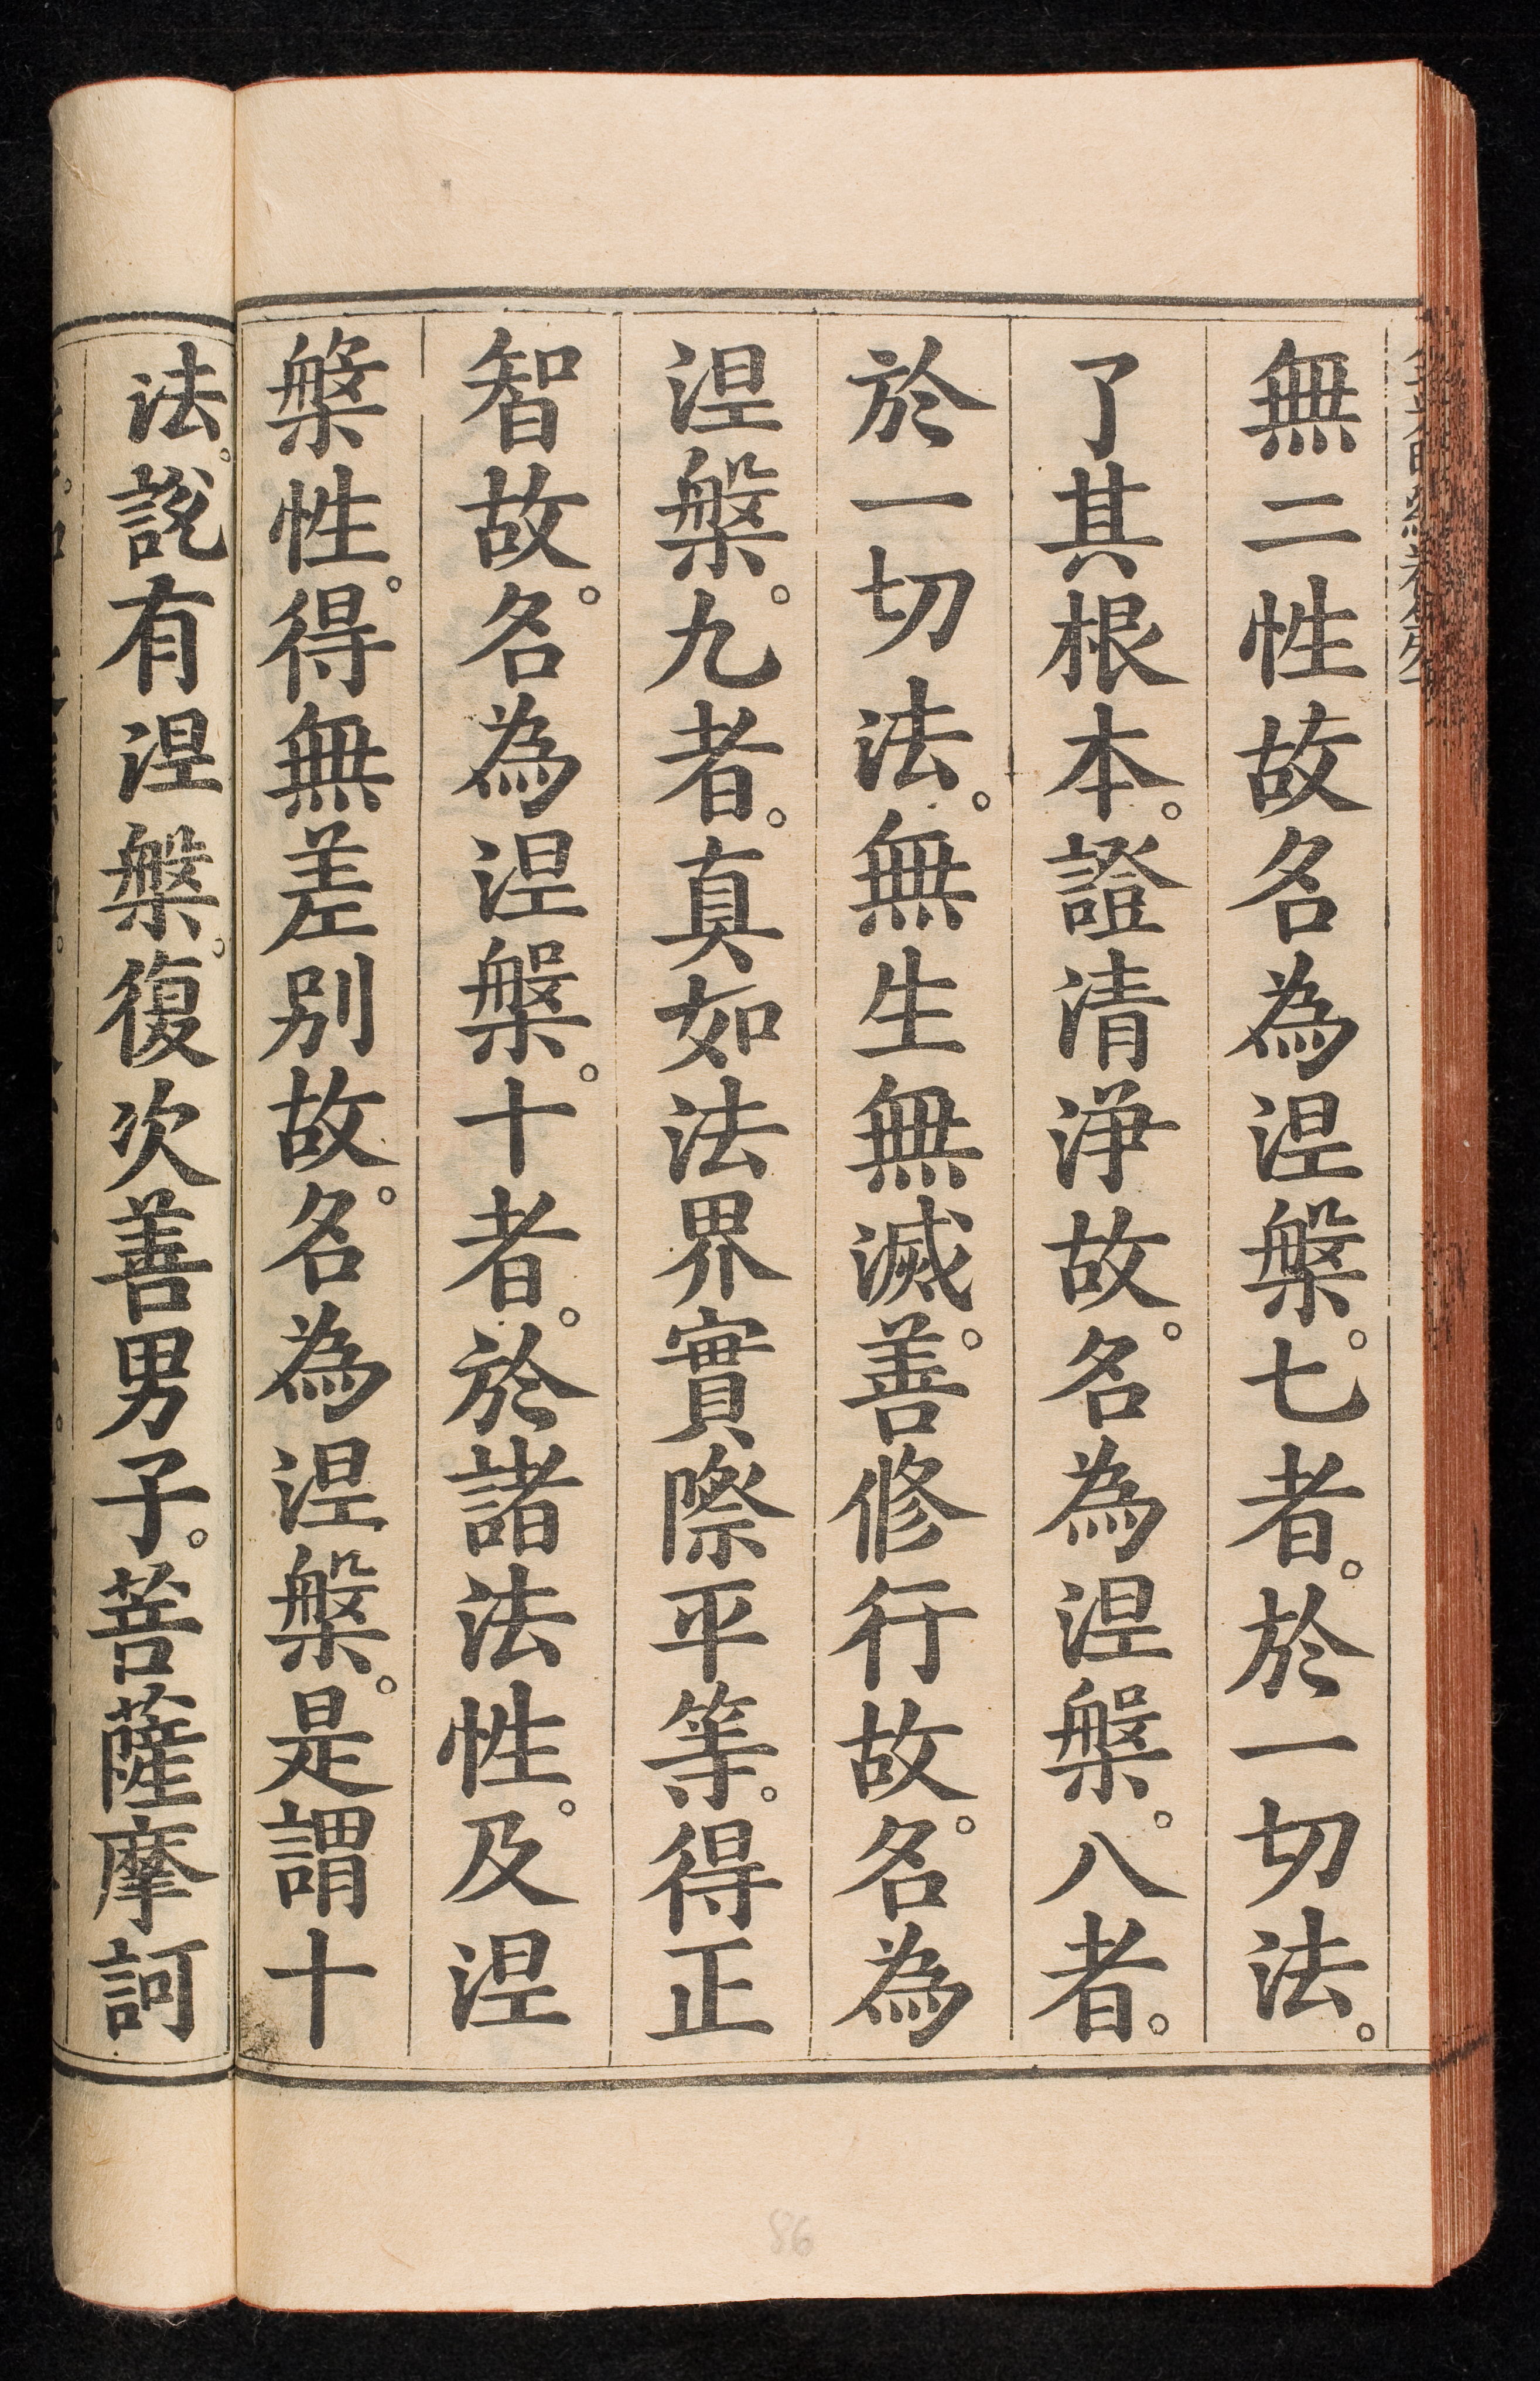 無二性故名為涅槃。七者。於一切法。
了其根本。證清淨故。名為涅槃。八者。
於一切法。無生無滅。善修行故。名為
涅槃。九者。真如法界實際平等。得正
智故。名為涅槃。十者。於諸法性。及涅
槃性。得無差別故。名為涅槃。是謂十
法。說有涅槃。復次善男子。菩薩摩訶
86